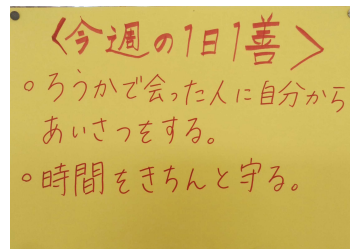 〈今週の1日1善〉
○ろうかで会った人に自分から
あいさつをする。
○時間をきちんと守る。